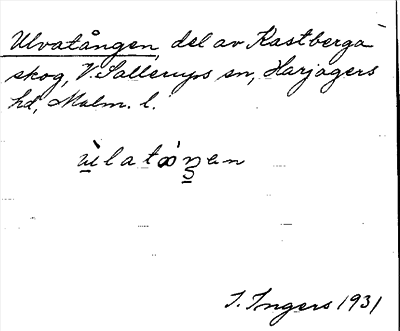 Ulvatången, del av Kastberga
skog, V. Sallerups sn, Harjagers
hd, Malm. l.
I. Ingers 1931